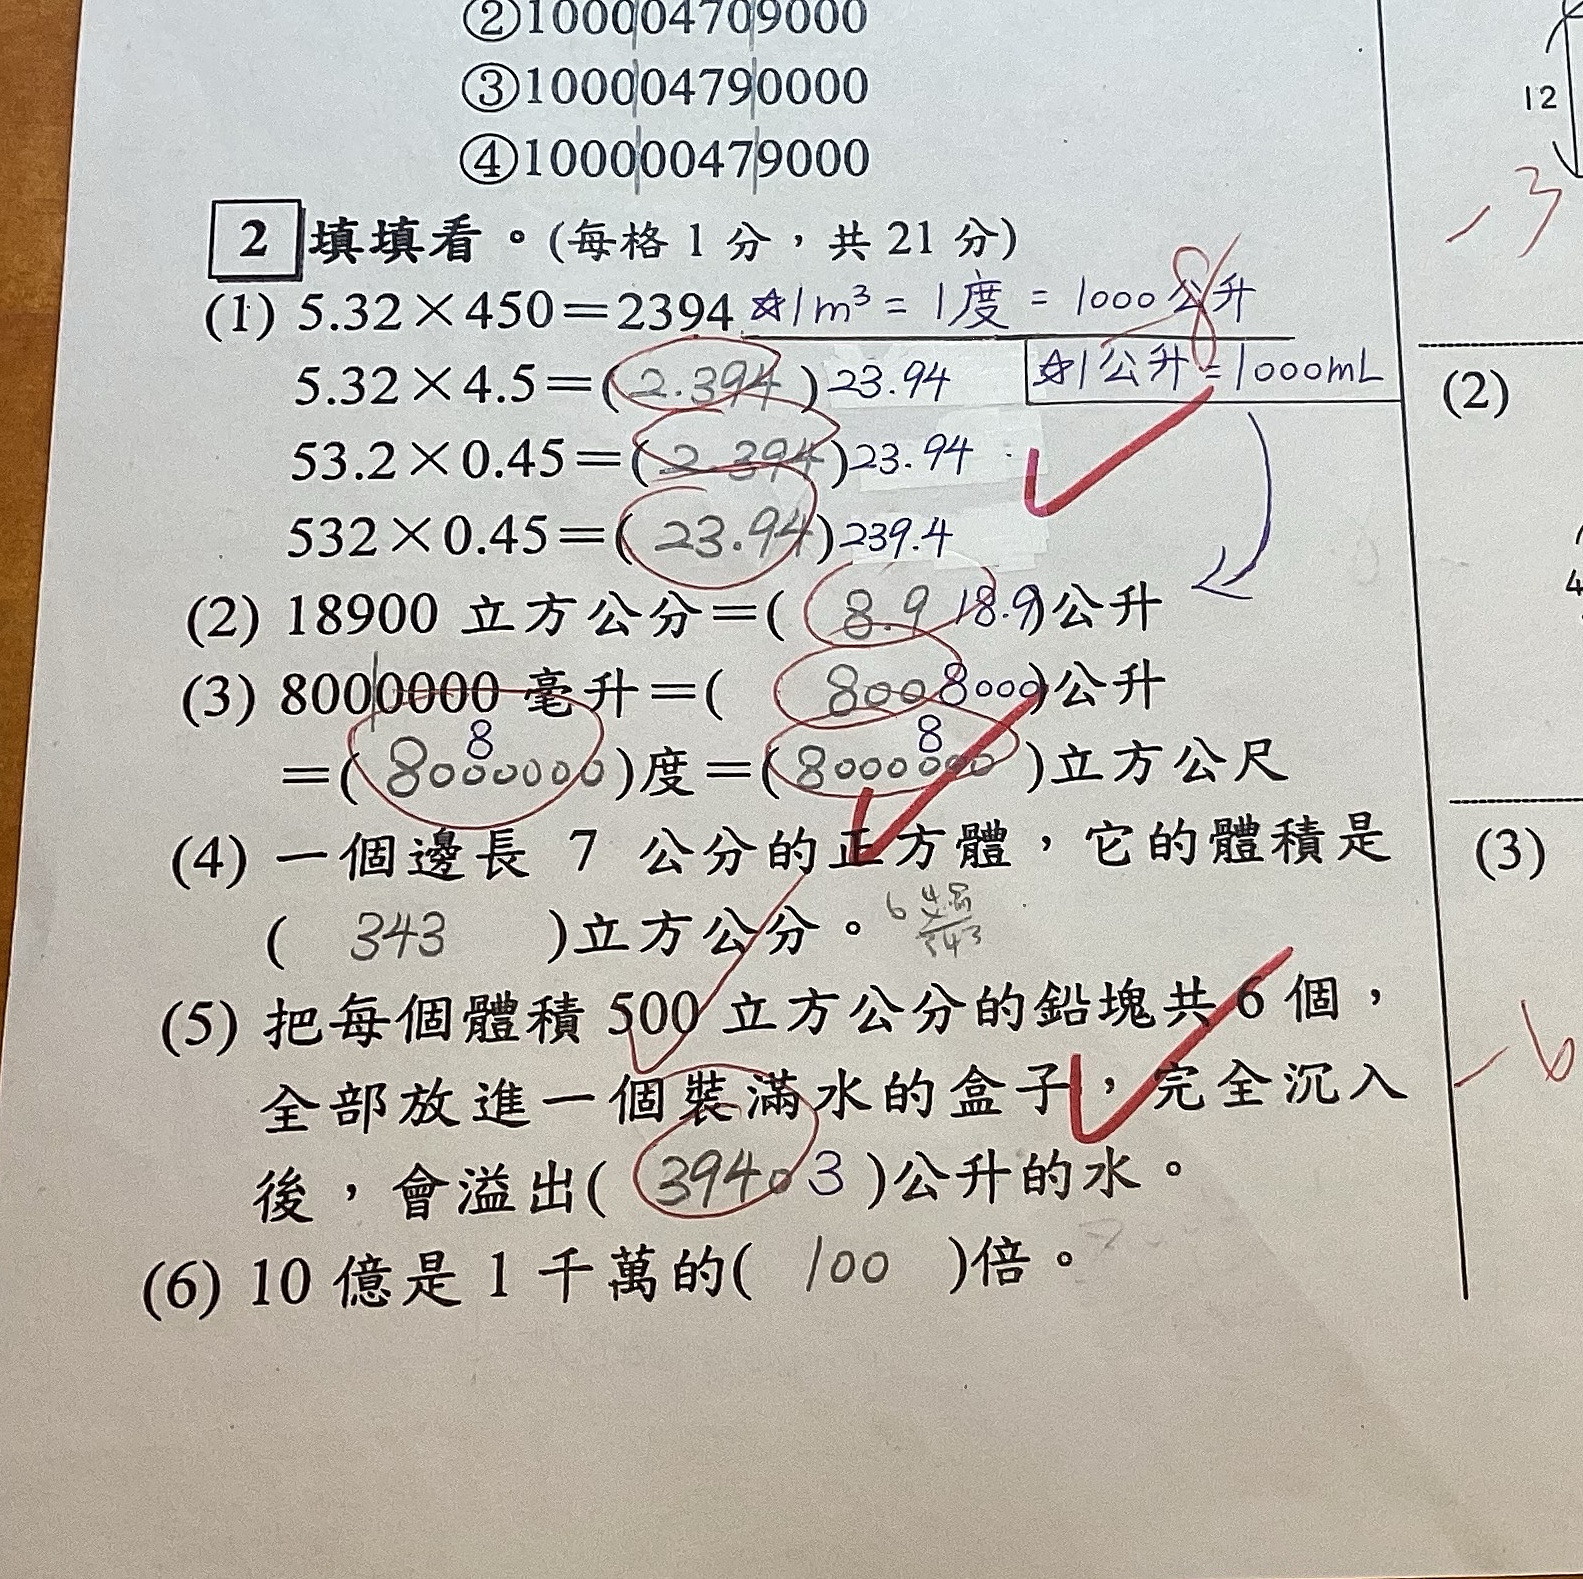 ②1000004709000
③1000004790000
④1000000479000
2 填填看。(每格 1 分，共 21 分)
(1) 5.32×450＝2394 ☆1m³ = 1度 = 1000公升
☆1公升=1000mL
5.32×4.5＝(2.394)23.94
53.2×0.45＝(2.394)23.94
532×0.45＝(23.94)239.4
(2) 18900 立方公分＝( 8.9 18.9)公升
(3) 8000000 毫升＝( 800 8000)公升
＝(8000000 8)度＝(8000000 8)立方公尺
(4) 一個邊長 7 公分的正方體，它的體積是
( 343 )立方公分。
(5) 把每個體積 500 立方公分的鉛塊共 6 個，
全部放進一個裝滿水的盒子，完全沉入
後，會溢出( 3940 3 )公升的水。
(6) 10 億是 1 千萬的( 100 )倍。
12
-3
(2)
4
(3)
-6